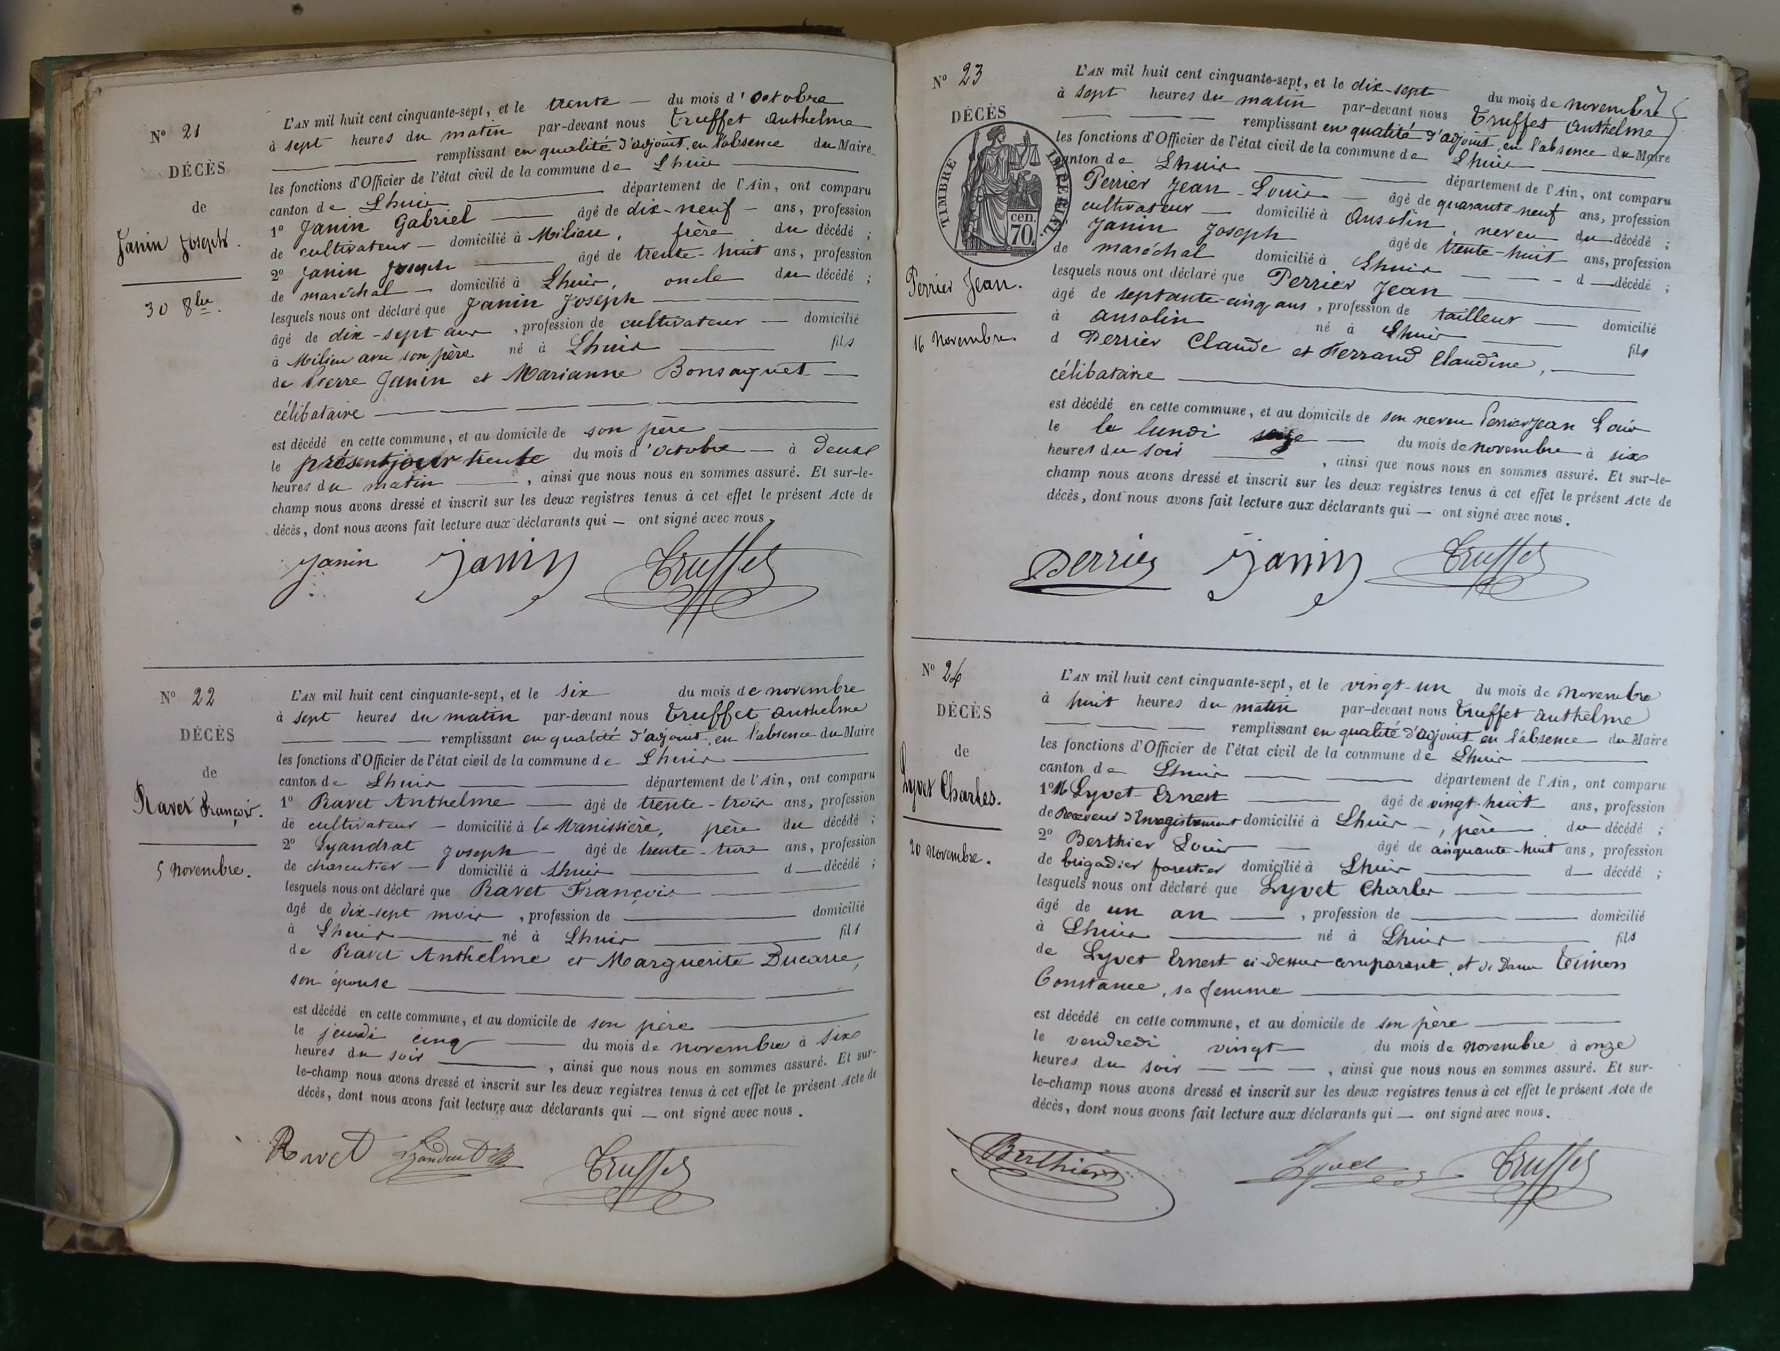 N° 21
DÉCÈS
de
Janin Joseph.
30 8bre.
L'AN mil huit cent cinquante-sept, et le trente — du mois d'octobre
à sept heures du matin par-devant nous Truffet Anthelme
remplissant en qualité d'adjoint, en l'absence du Maire
les fonctions d'Officier de l'état civil de la commune de Lhuis
canton de Lhuis département de l'Ain, ont comparu
1° Janin Gabriel — âgé de dix-neuf — ans, profession
de cultivateur — domicilié à Milieu, frère du décédé ;
2° Janin Joseph — âgé de trente-huit ans, profession
de maréchal — domicilié à Lhuis, oncle du décédé ;
lesquels nous ont déclaré que Janin Joseph
âgé de dix-sept ans, profession de cultivateur — domicilié
à Milieu avec son père né à Lhuis — fils
de Pierre Janin et Marianne —
célibataire
est décédé en cette commune, et au domicile de son père
le présent jour trente du mois d'octobre — à deux
heures du matin —, ainsi que nous nous en sommes assuré. Et sur-le-
champ nous avons dressé et inscrit sur les deux registres tenus à cet effet le présent Acte de
décès, dont nous avons fait lecture aux déclarants qui — ont signé avec nous.
Janin Janin Truffet
N° 22
DÉCÈS
de
Ravet François.
5 novembre.
L'AN mil huit cent cinquante-sept, et le six du mois de novembre
à sept heures du matin par-devant nous Truffet Anthelme
remplissant en qualité d'adjoint, en l'absence du Maire
les fonctions d'Officier de l'état civil de la commune de Lhuis
canton de Lhuis département de l'Ain, ont comparu
1° Ravet Anthelme — âgé de trente-trois ans, profession
de cultivateur — domicilié à la Manissière, père du décédé ;
2° Lyandrat Joseph — âgé de trente- ans, profession
de — domicilié à Lhuis — d — décédé ;
lesquels nous ont déclaré que Ravet François
âgé de dix-sept mois, profession de — domicilié
à Lhuis né à Lhuis — fils
de Ravet Anthelme et Marguerite Ducarre,
son épouse
est décédé en cette commune, et au domicile de son père
le jeudi cinq — du mois de novembre à six
heures du soir —, ainsi que nous nous en sommes assuré. Et sur-
le-champ nous avons dressé et inscrit sur les deux registres tenus à cet effet le présent Acte de
décès, dont nous avons fait lecture aux déclarants qui — ont signé avec nous.
Ravet Truffet
N° 23
DÉCÈS
TIMBRE IMPÉRIAL
70 cen.
Perrier Jean.
16 novembre.
L'AN mil huit cent cinquante-sept, et le dix-sept du mois de novembre
à sept heures du matin par-devant nous Truffet Anthelme
remplissant en qualité d'adjoint, en l'absence du Maire
les fonctions d'Officier de l'état civil de la commune de Lhuis
canton de Lhuis département de l'Ain, ont comparu
Perrier Jean-Louis — âgé de quarante neuf ans, profession
cultivateur — domicilié à Ansolin, neveu du décédé ;
Janin Joseph âgé de trente-huit ans, profession
de maréchal domicilié à Lhuis — d — décédé ;
lesquels nous ont déclaré que Perrier Jean
âgé de septante-cinq ans, profession de tailleur — domicilié
à Ansolin né à Lhuis — fils
d Perrier Claude et Ferrand Claudine, —
célibataire
est décédé en cette commune, et au domicile de son neveu Perrier Jean Louis
le le lundi seize — du mois de novembre à six
heures du soir —, ainsi que nous nous en sommes assuré. Et sur-le-
champ nous avons dressé et inscrit sur les deux registres tenus à cet effet le présent Acte de
décès, dont nous avons fait lecture aux déclarants qui — ont signé avec nous.
Perrier Janin Truffet
N° 24
DÉCÈS
de
Lyvet Charles.
20 novembre.
L'AN mil huit cent cinquante-sept, et le vingt-un du mois de novembre
à huit heures du matin par-devant nous Truffet Anthelme
remplissant en qualité d'adjoint en l'absence du Maire
les fonctions d'Officier de l'état civil de la commune de Lhuis
canton de Lhuis département de l'Ain, ont comparu
1° M Lyvet Ernest — âgé de vingt-huit ans, profession
de Receveur d'Enregistrement domicilié à Lhuis —, père du décédé ;
2° Berthier Louis — âgé de cinquante-huit ans, profession
de brigadier forestier domicilié à Lhuis — d — décédé ;
lesquels nous ont déclaré que Lyvet Charles
âgé de un an —, profession de — domicilié
à Lhuis né à Lhuis — fils
de Lyvet Ernest ci-dessus comparant, et de Dame
Constance, sa femme
est décédé en cette commune, et au domicile de son père
le vendredi vingt — du mois de novembre à onze
heures du soir —, ainsi que nous nous en sommes assuré. Et sur-
le-champ nous avons dressé et inscrit sur les deux registres tenus à cet effet le présent Acte de
décès, dont nous avons fait lecture aux déclarants qui — ont signé avec nous.
Berthier Lyvet Truffet